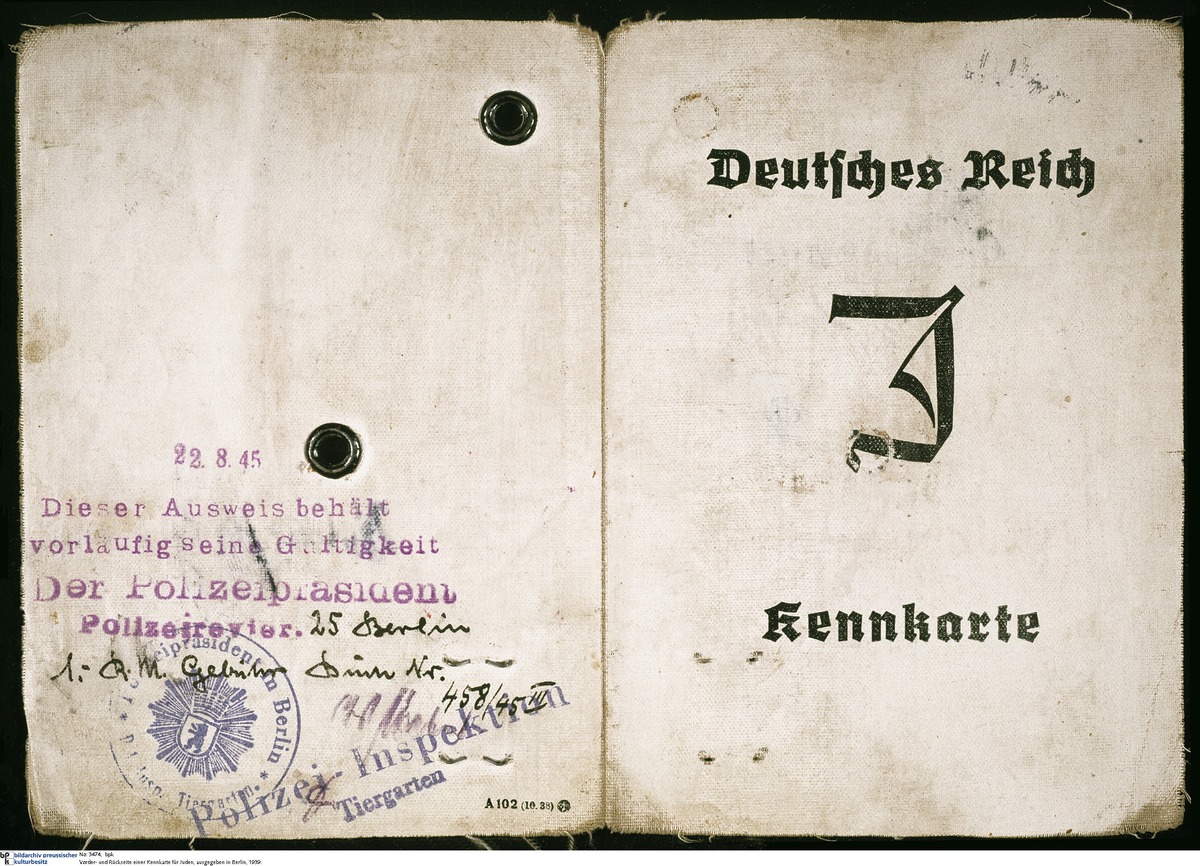 22. 8. 45
Dieser Ausweis behält
vorläufig seine Gültigkeit
Der Polizeipräsident
Polizeirevier. 25 Berlin
1,- R.M. Gebühr Nr.
458/45 III
Polizeipräsident in Berlin * Tiergarten *
Polizei-Inspektion
Tiergarten
A 102 (10. 38)
Deutsches Reich
J
Kennkarte
bpk bildarchiv preussischer kulturbesitz
No: 3474, bpk
Vorder- und Rückseite einer Kennkarte für Juden, ausgegeben in Berlin, 1939.